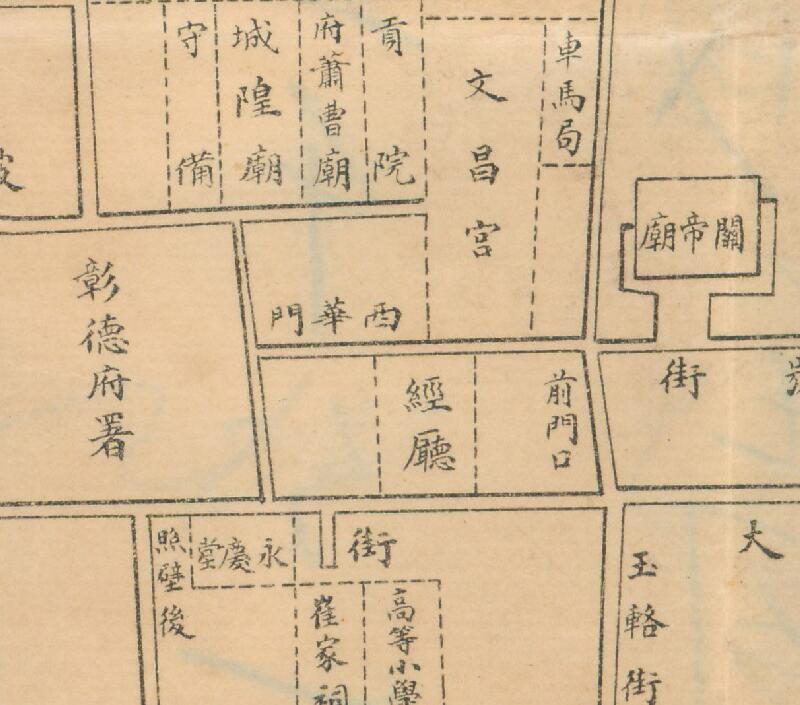 車馬局
文昌宮
貢院
府蕭曹廟
城隍廟
守備
關帝廟
西華門
彰德府署
前門口
經廳
街
大
玉輅街
街
永慶堂
照壁後
高等小學
崔家祠